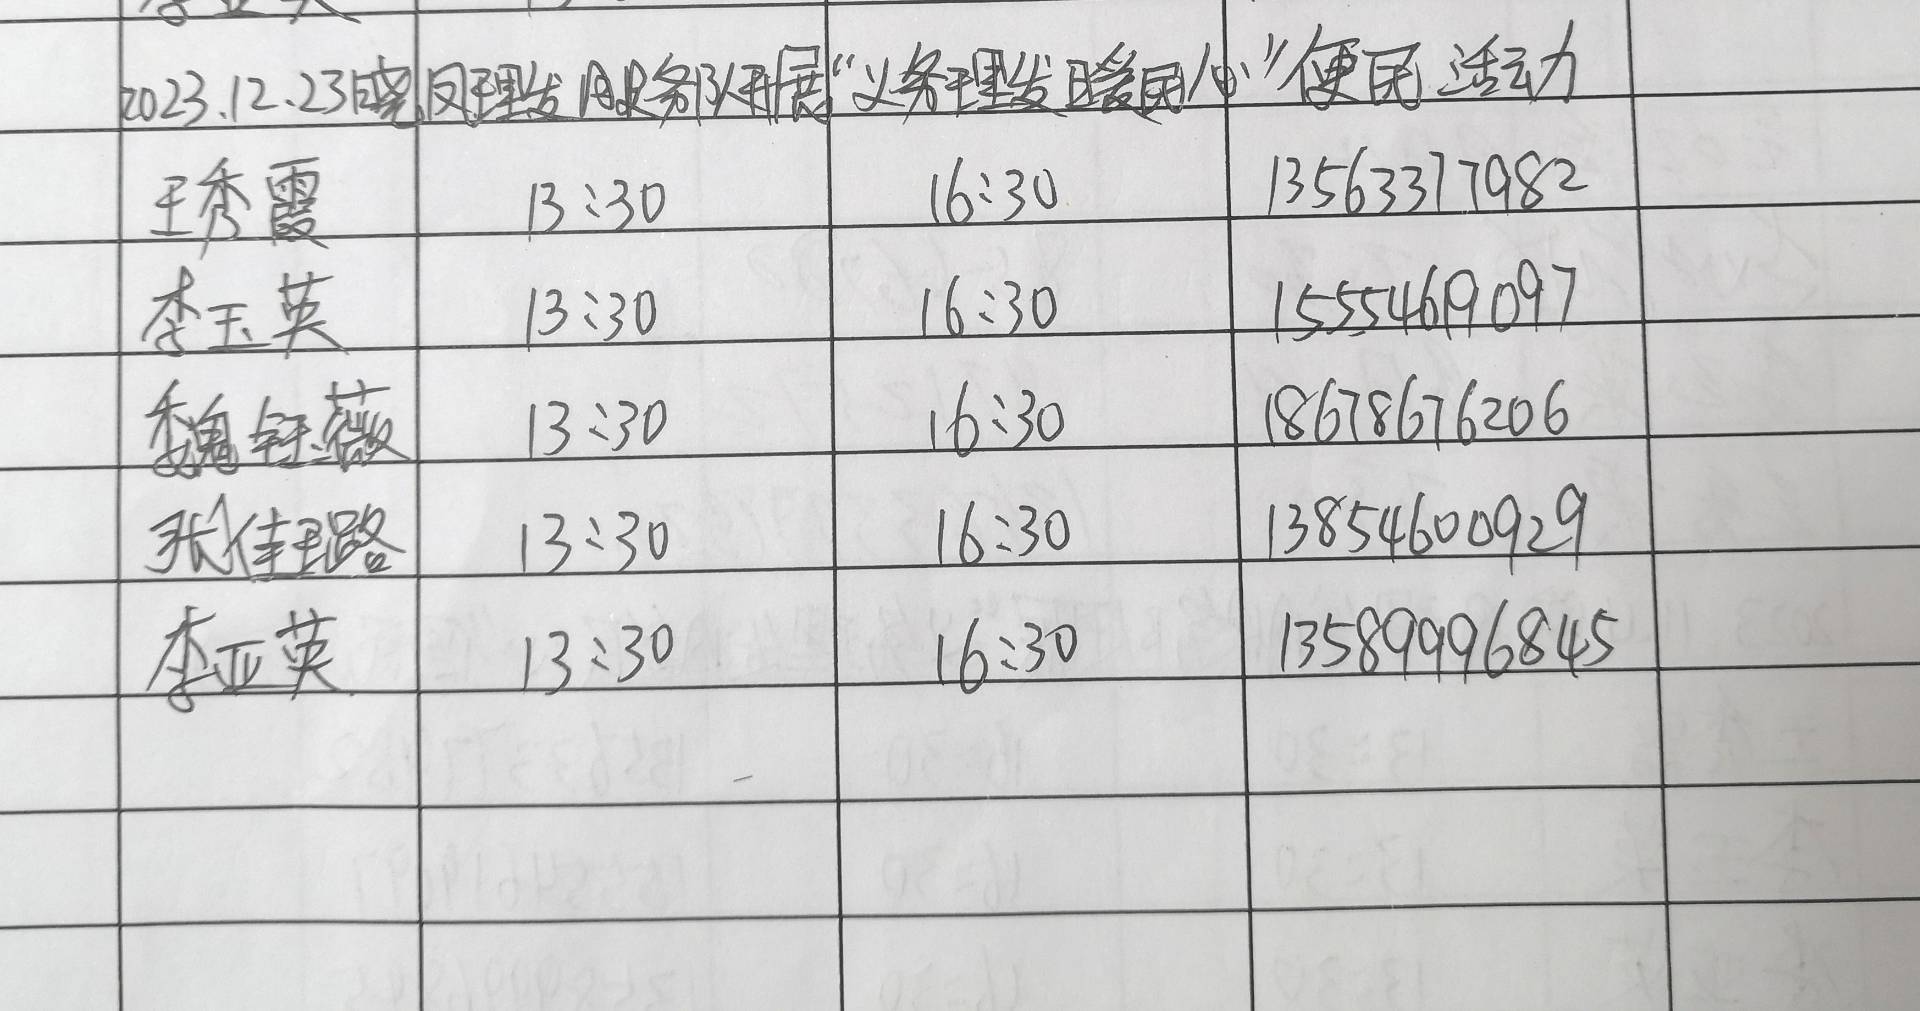 2023.12.23晓凤理发服务队开展“义务理发暖民心”便民活动
王秀霞 13:30 16:30 13563377982
李玉英 13:30 16:30 15554619097
魏钰薇 13:30 16:30 18678676206
张佳璐 13:30 16:30 13854600929
李亚英 13:30 16:30 13589996845